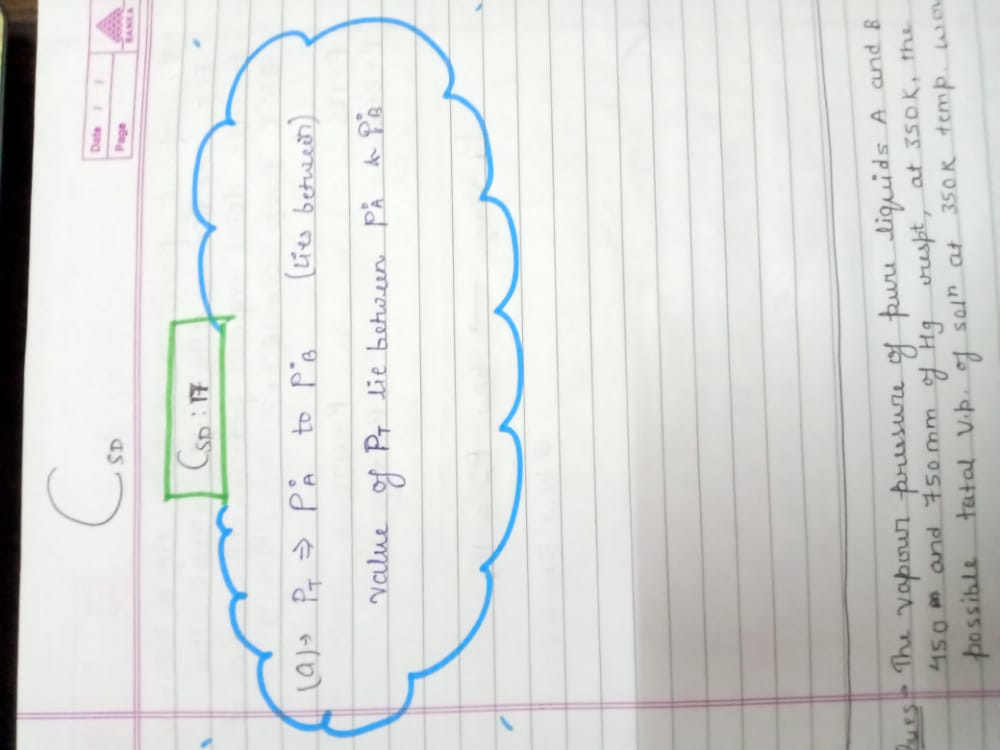 Date / /
Page
RANKA
C SD
CSD : 17
(a) → PT ⇒ P°A to P°B (lies between)
value of PT lie between P°A & P°B
The vapour pressure of pure liquids A and B
450 m and 750 mm of Hg respt, at 350K, the
possible total v.p. of soln at 350K temp.